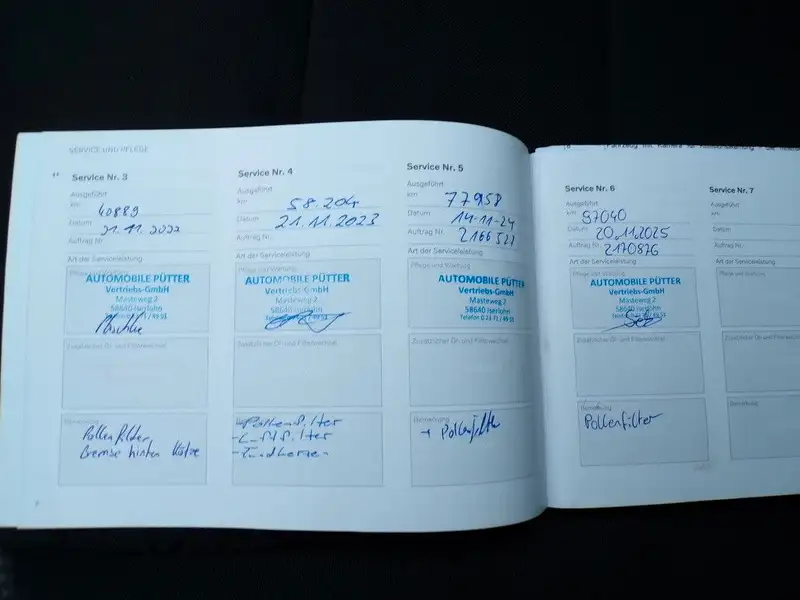 SERVICE UND PFLEGE
Service Nr. 3
Ausgeführt
km 40889
Datum 21.11.2022
Auftrag Nr.
Art der Serviceleistung
Pflege und Wartung
AUTOMOBILE PÜTTER
Vertriebs-GmbH
Masteweg 2
58640 Iserlohn
Zusätzlicher Öl- und Filterwechsel
Bemerkung
Pollenfilter
Bremse hinten
7
Service Nr. 4
Ausgeführt
km 58.204
Datum 21.11.2023
Auftrag Nr.
Art der Serviceleistung
Pflege und Wartung
AUTOMOBILE PÜTTER
Vertriebs-GmbH
Masteweg 2
58640 Iserlohn
Zusätzlicher Öl- und Filterwechsel
-Pollenfilter
-Luftfilter
-Zündkerzen
Service Nr. 5
Ausgeführt
km 77958
Datum 14-11-24
Auftrag Nr. 2166521
Art der Serviceleistung
Pflege und Wartung
AUTOMOBILE PÜTTER
Vertriebs-GmbH
Masteweg 2
58640 Iserlohn
Telefon 0 23 71 / 49 51
Zusätzlicher Öl- und Filterwechsel
Bemerkung
→ Pollenfilter
Service Nr. 6
Ausgeführt
km 97040
Datum 20.11.2025
Auftrag Nr. 2170876
Art der Serviceleistung
Pflege und Wartung
AUTOMOBILE PÜTTER
Vertriebs-GmbH
Masteweg 2
58640 Iserlohn
Zusätzlicher Öl- und Filterwechsel
Bemerkung
Pollenfilter
Service Nr. 7
Ausgeführt
km
Datum
Auftrag Nr.
Art der Serviceleistung
Pflege und Wartung
Zusätzlicher Öl- und
Bemerkung